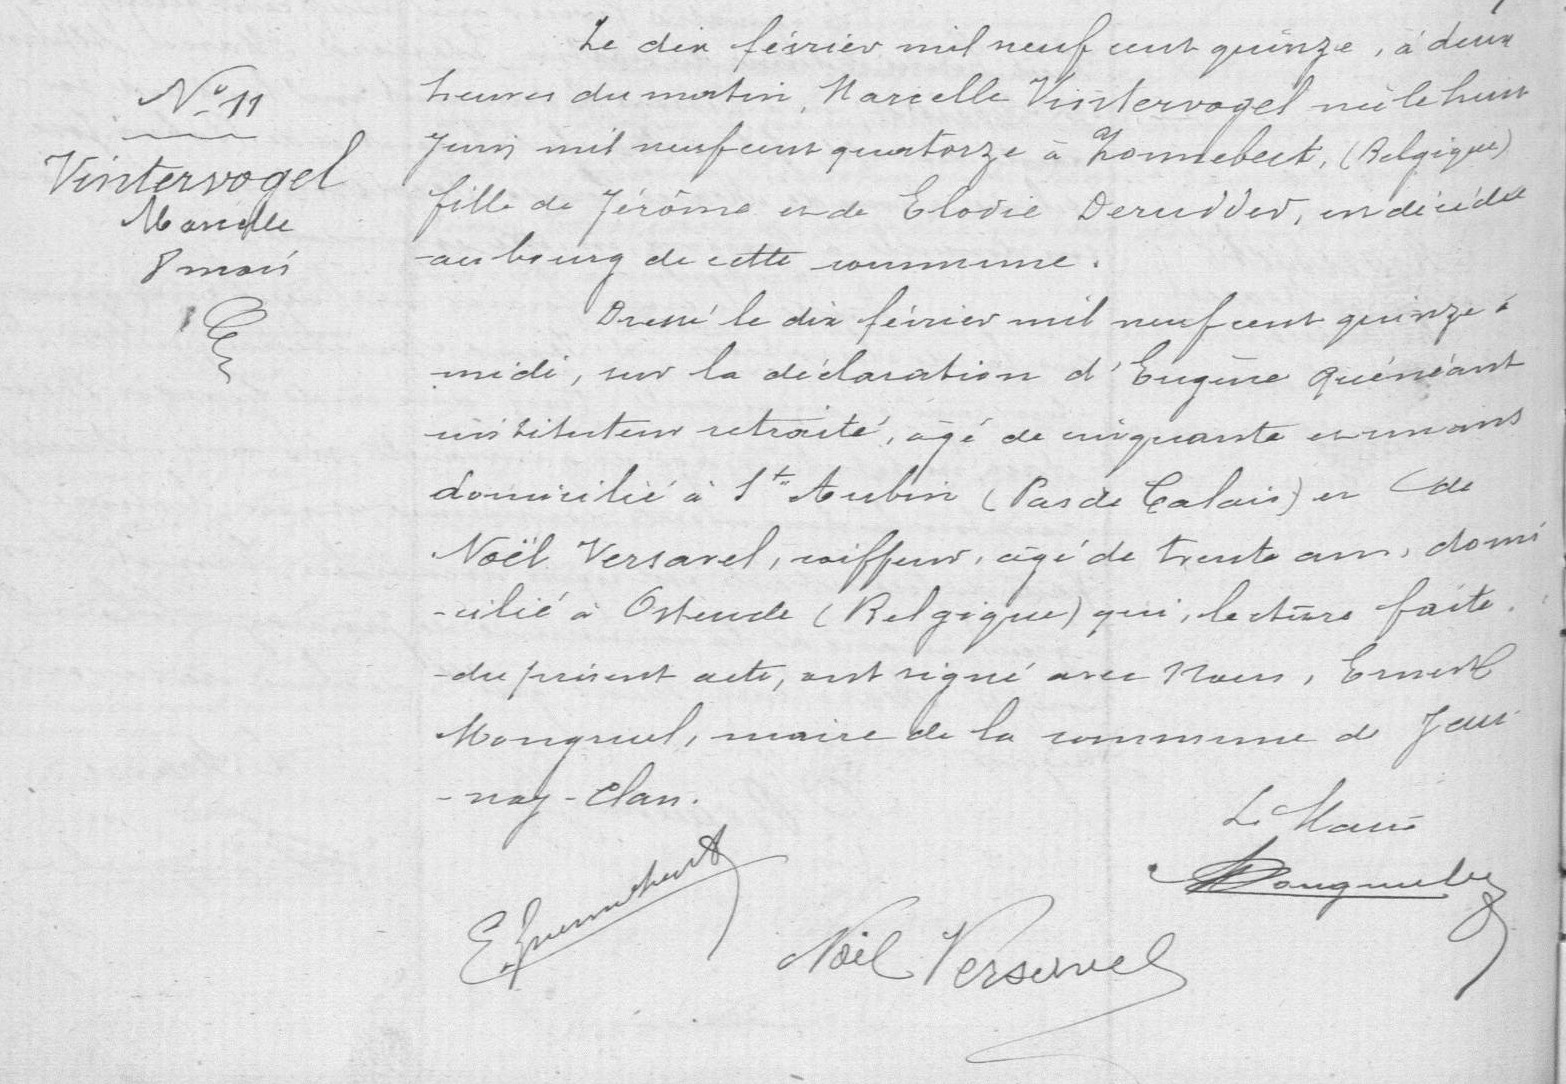 Le dix février mil neuf cent quinze, à deux
heures du matin, Marcelle Vintervogel née le huit
Juin mil neuf cent quatorze à Zonnebeck, (Belgique)
fille de Jérôme et de Elodie Derudder, est décédée
au bourg de cette commune.
Dressé le dix février mil neuf cent quinze à
midi, sur la déclaration d'Eugène Quénéhant
instituteur retraité, âgé de cinquante et un ans
domicilié à St Aubin (Pas de Calais) et de
Noël Versavel, coiffeur, âgé de trente ans, domi
-cilié à Ostende (Belgique) qui, lecture faite
du présent acte, ont signé avec Nous, Ernest
Mongruel, maire de la commune de Jau
-nay-Clan.
N° 11
Vintervogel
Marcelle
8 mois
Le Maire
Mongruel
Noël Versavel